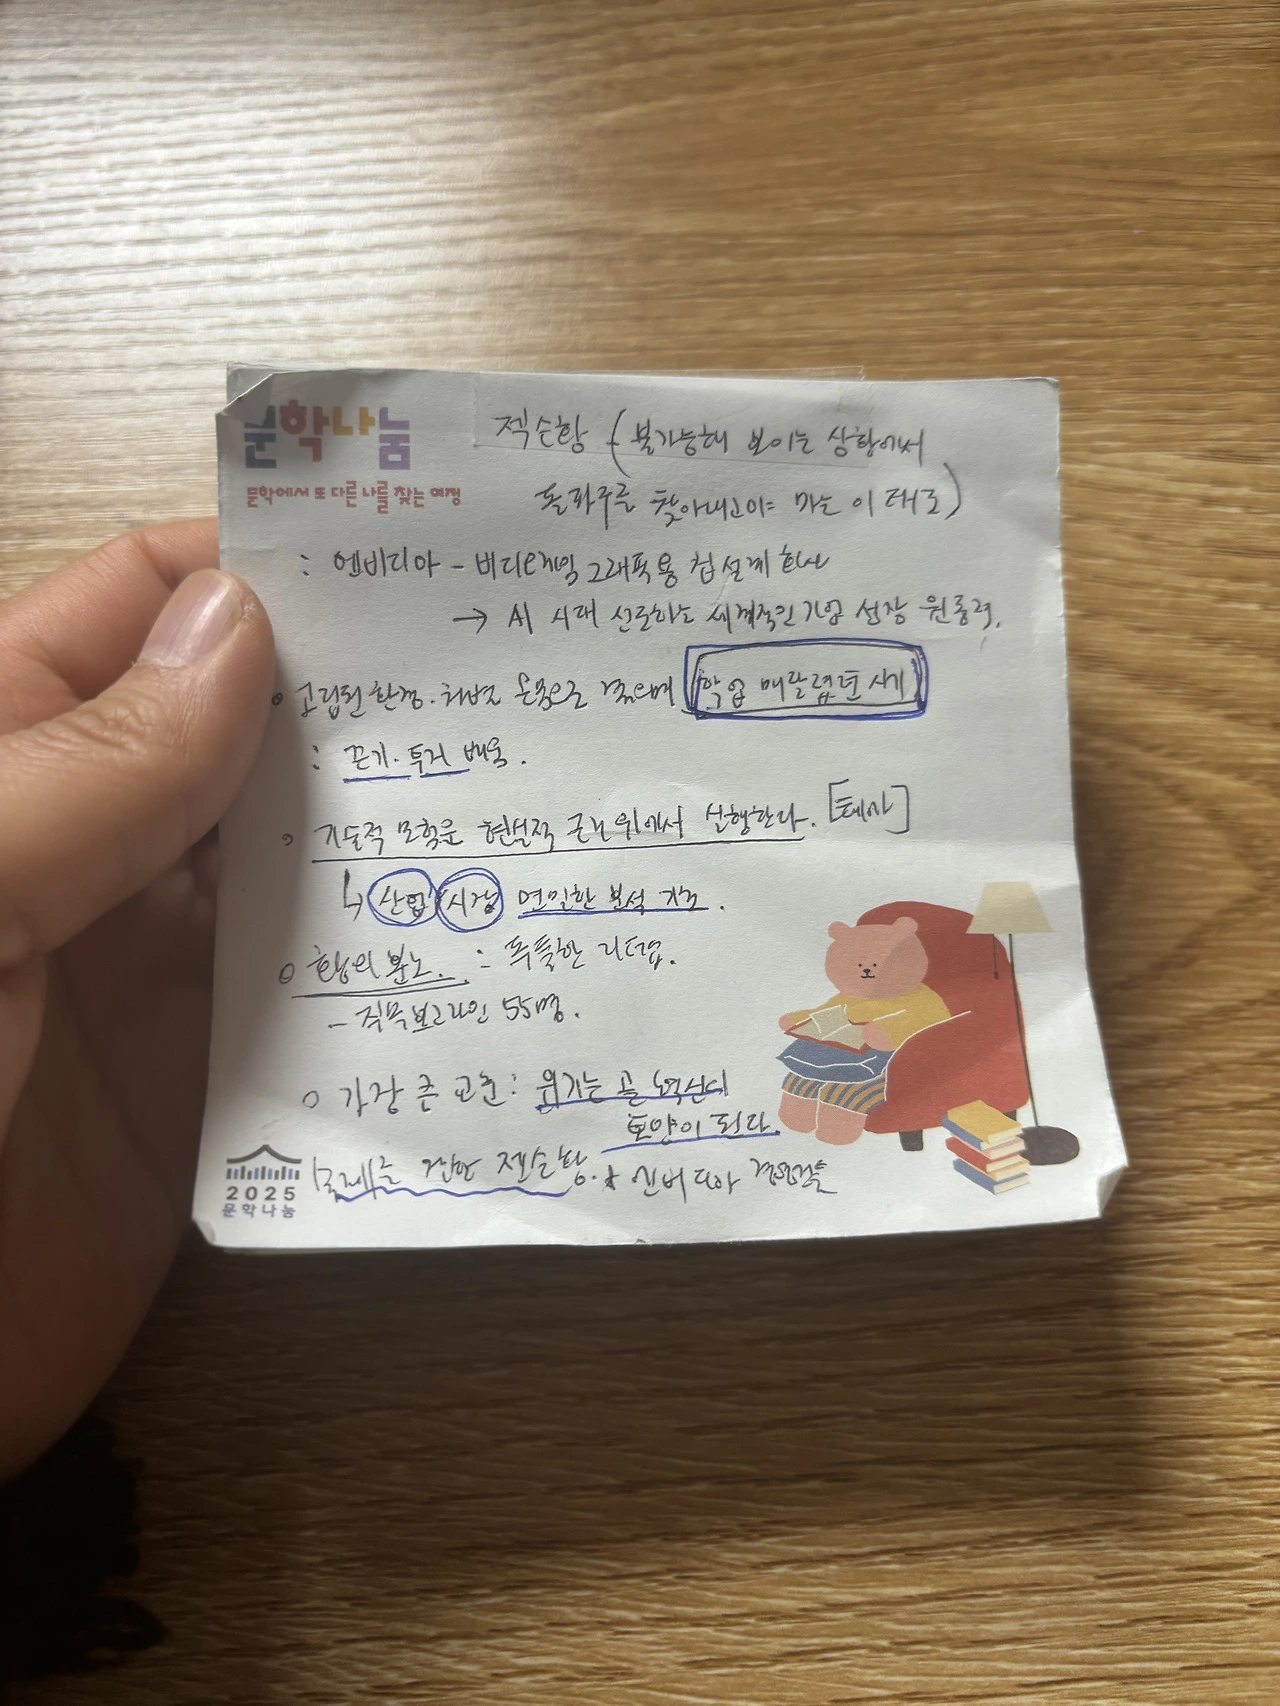 문학나눔
문학에서 또 다른 나를 찾는 여정
젝슨황 (불가능해 보이는 상황에서
돌파구를 찾아내고야 마는 이 태도)
: 엔비디아 - 비디오게임 그래픽용 칩 설계 회사
→ AI 시대 선도하는 세계적인 기업 성장 원동력.
고립된 환경. 차별 온몸으로 겪으며 학업 매달렸던 시기
: 끈기. 투지 배움.
기술적 모험은 현실적 근거 위에서 실행한다. [태도]
↳ 산업 시장 면밀한 분석 기초.
○ 황의 분노. : 독특한 리더쉽.
- 직속보고라인 55명.
○ 가장 큰 교훈 : 위기는 곧 혁신의
토양이 된다.
젠슨황. 엔비디아
2025
문학나눔